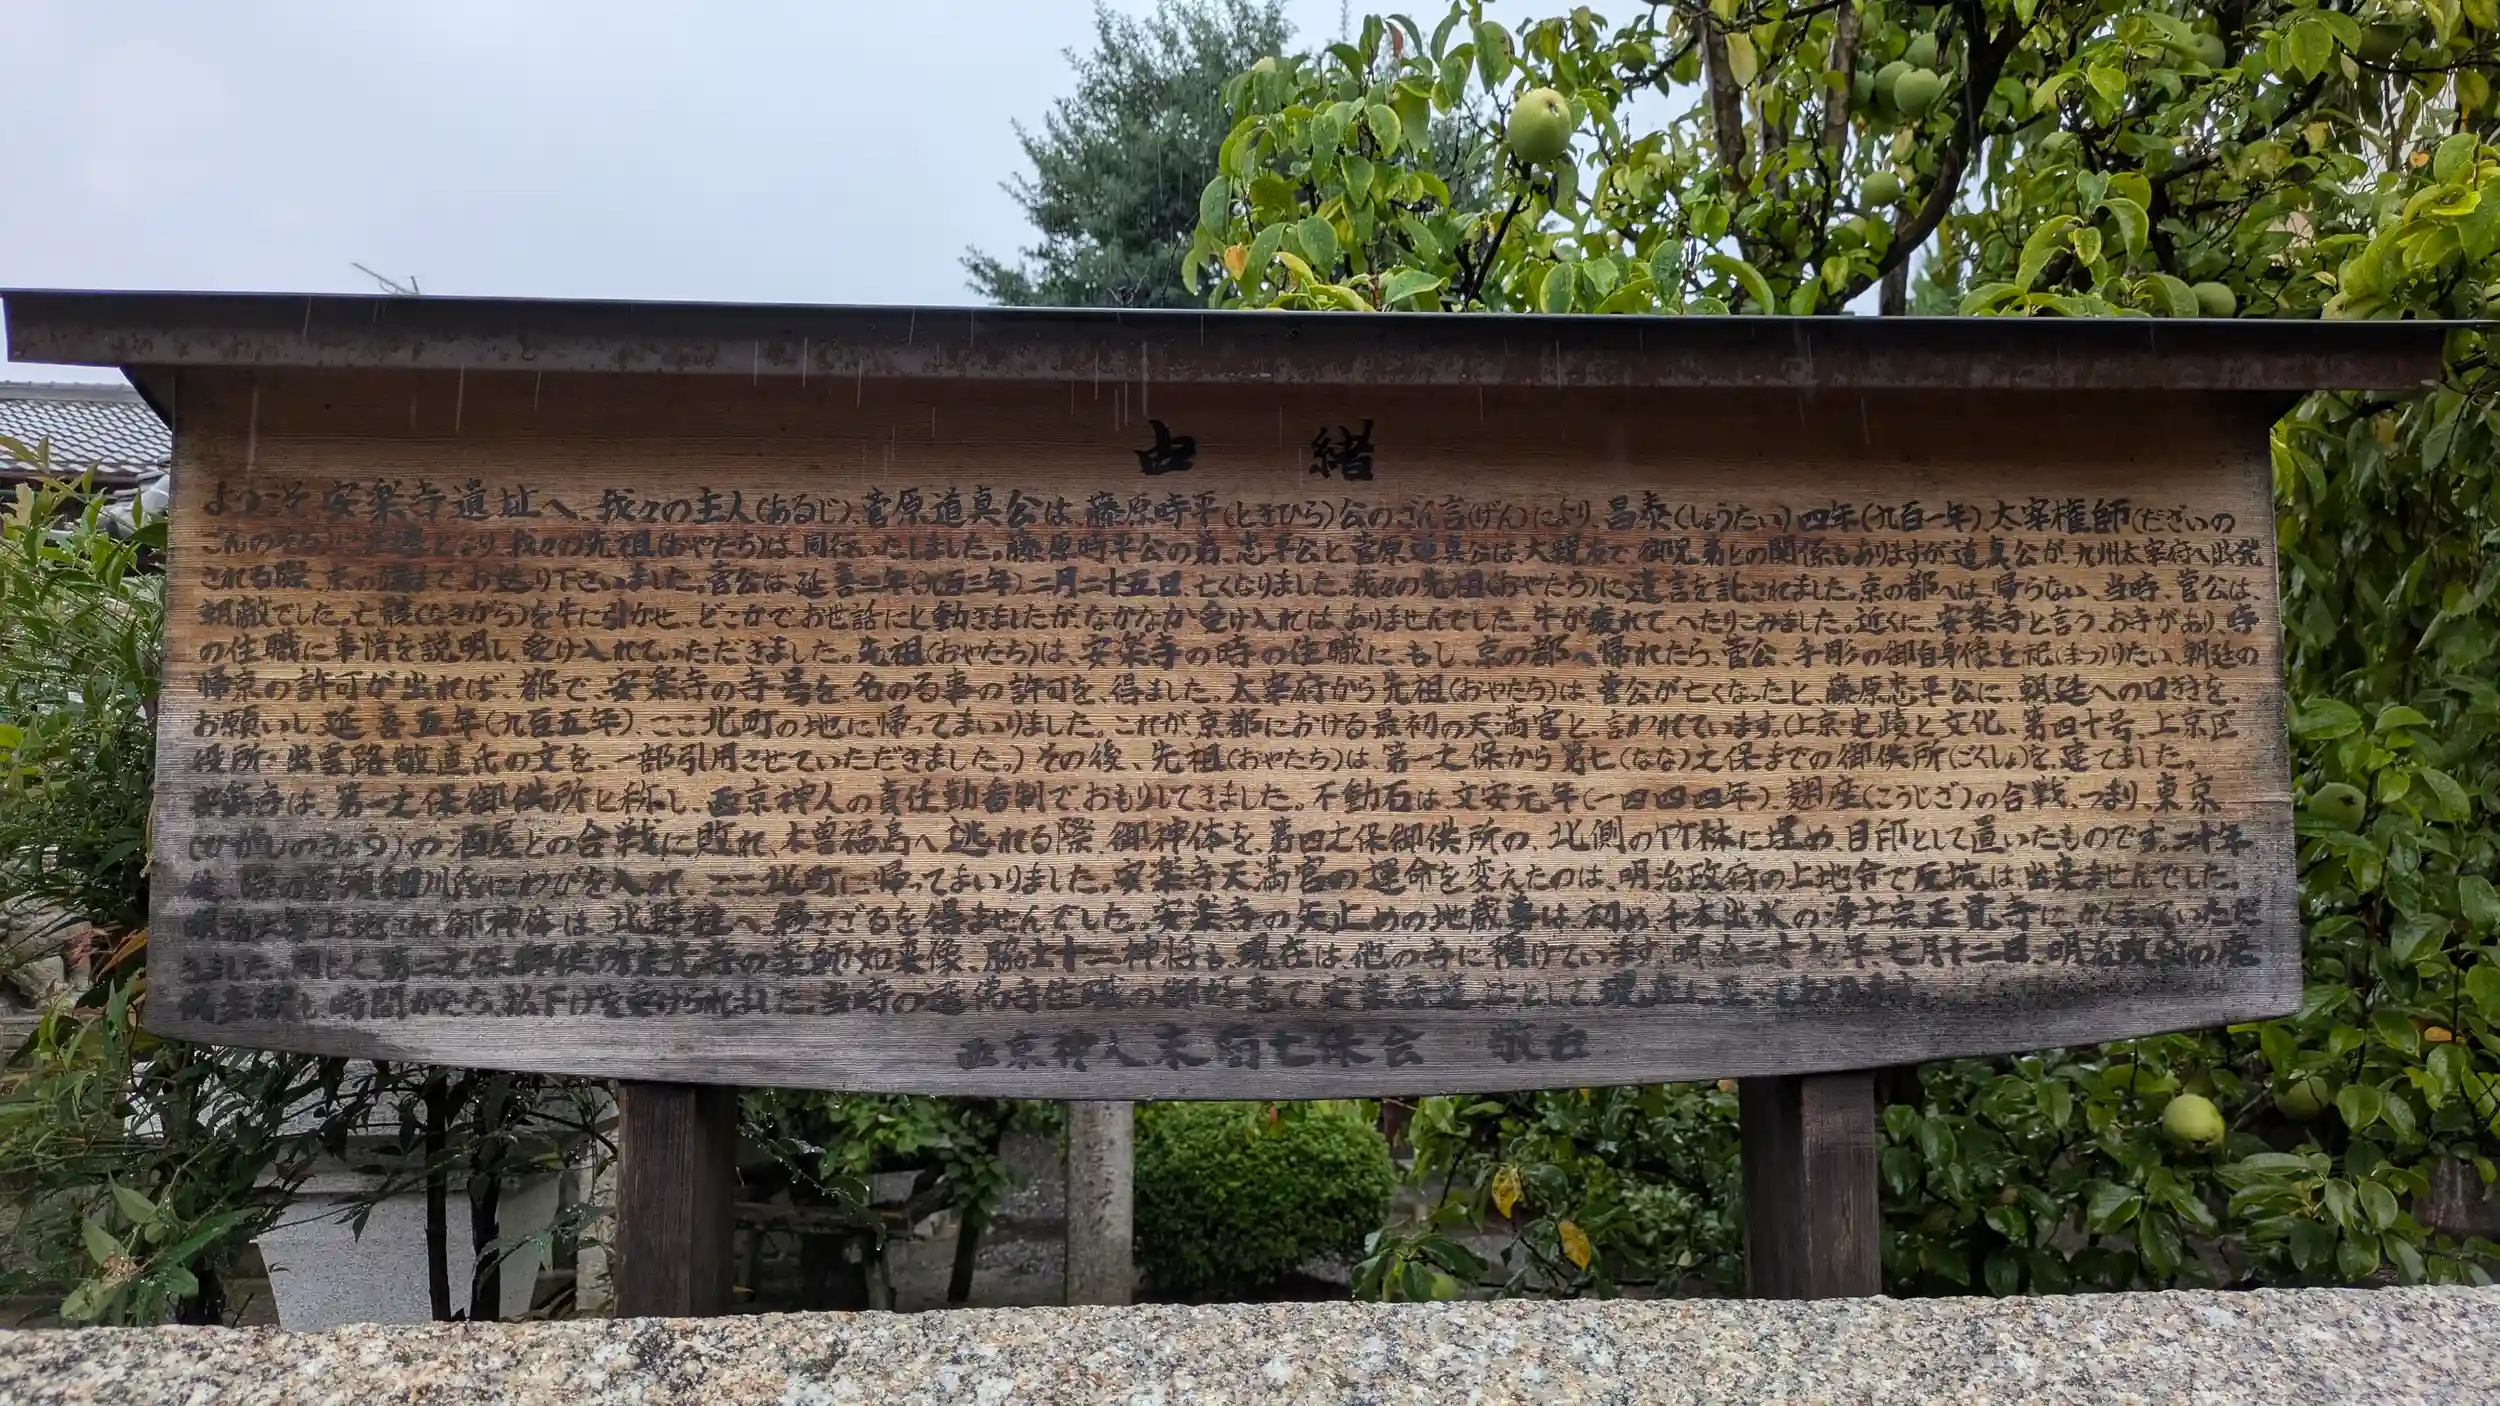 由緒
ようこそ安楽寺遺址へ、我々の主人(あるじ)、菅原道真公は、藤原時平(ときひら)公のごん言(げん)により、昌泰(しょうたい)四年(九百一年)太宰権師(だざいの
ごんのそち)に左遷となり、我々の先祖(おやたち)は、同行いたしました。藤原時平公の弟、忠平公と菅原道真公は、大親友で御兄弟との関係もありますが道真公が、九州太宰府へ出発
される際、京の端までお送り下さいました。菅公は、延喜三年(九百三年)二月二十五日、亡くなりました。我々の先祖(おやたち)に遺言を託されました。京の都へは、帰らない、当時、菅公は、
朝敵でした。亡骸(なきがら)を牛に引かせ、どこかでお世話にと動きましたが、なかなか受け入れは、ありませんでした。牛が疲れて、へたりこみました。近くに、安楽寺と言う、お寺があり、寺
の住職に事情を説明し、受け入れていただきました。先祖(おやたち)は、安楽寺の時の住職に、もし、京の都へ帰れたら、菅公、手彫の御自身像を祀(まつ)りたい、朝廷の
帰京の許可が出れば、都で、安楽寺の寺号を、名のる事の許可を、得ました。太宰府から先祖(おやたち)は、菅公が亡くなったと、藤原忠平公に、朝廷への口狩を、
お願いし延喜五年(九百五年)、ここ北町の地に帰ってまいりました。これが、京都における最初の天満宮と、言われています。(上京・史蹟と文化、第四十号、上京区
役所:出雲路敬直氏の文を、一部引用させていただきました。)その後、先祖(おやたち)は、第一之保から第七(なな)之保までの御供所(ごくしょ)を、建てました。
安楽寺は、第一之保御供所と称し、西京神人の責任勤番制で、おもりしてきました。不動石は、文安元年(一四四四年)、麹座(こうじざ)の合戦、つまり、東京
(ひがしのきょう)の酒屋との合戦に敗れ、木曽福島へ逃れる際、御神体を、第四之保御供所の、北側の竹林に埋め、目印として置いたものです。二十年
後、時の管領細川氏にわびを入れ、ここ北町に帰ってまいりました。安楽寺天満宮の運命を変えたのは、明治政府の上地令で反抗は、出来ませんでした。
明治六年上地され御神体は、北野社へ移さざるを得ませんでした。安楽寺の矢止めの地蔵尊は、初め、千本出水の浄土宗正覚寺に、かくまっていただ
きました。同じく第二之保御供所東光寺の薬師如来像、脇士十二神将も、現在は、他の寺に預けています。明治三十九年七月十二日、明治政府の
時間がたち、払下げを受けられました。当時の 寺住職の御好意で安楽寺遺址として
西京神人末裔七保会 敬白